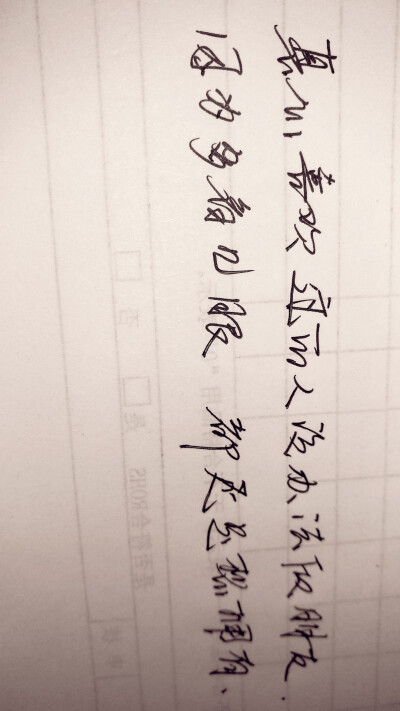 真心喜欢过的人没办法做朋友.
因为多看几眼 都是想拥有.